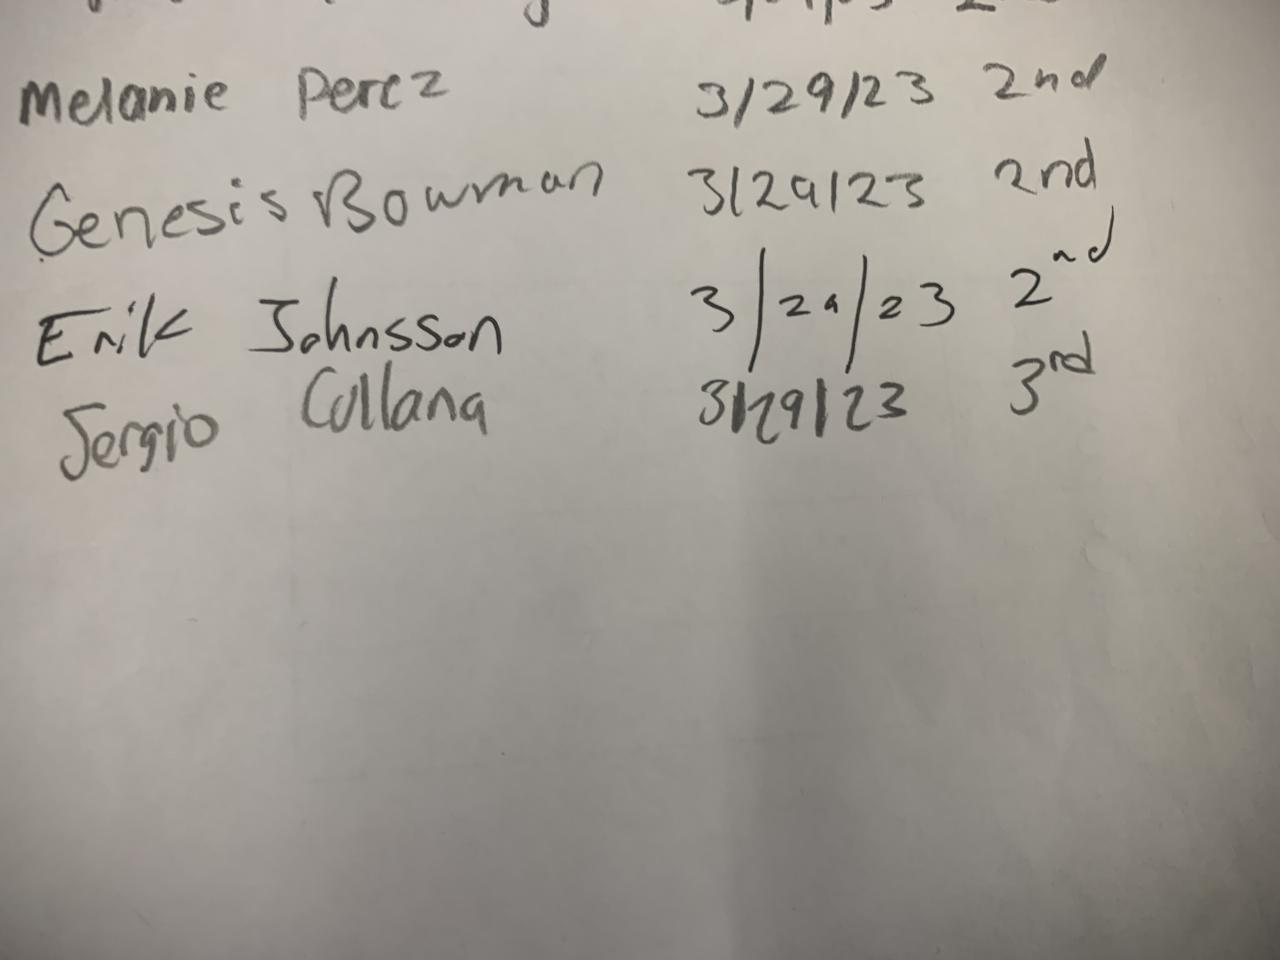 Melanie Perez 3/29/23 2nd
Genesis Bowman 3/29/23 2nd
Erik Johnsson 3/29/23 2nd
Sergio Collana 3/29/23 3rd